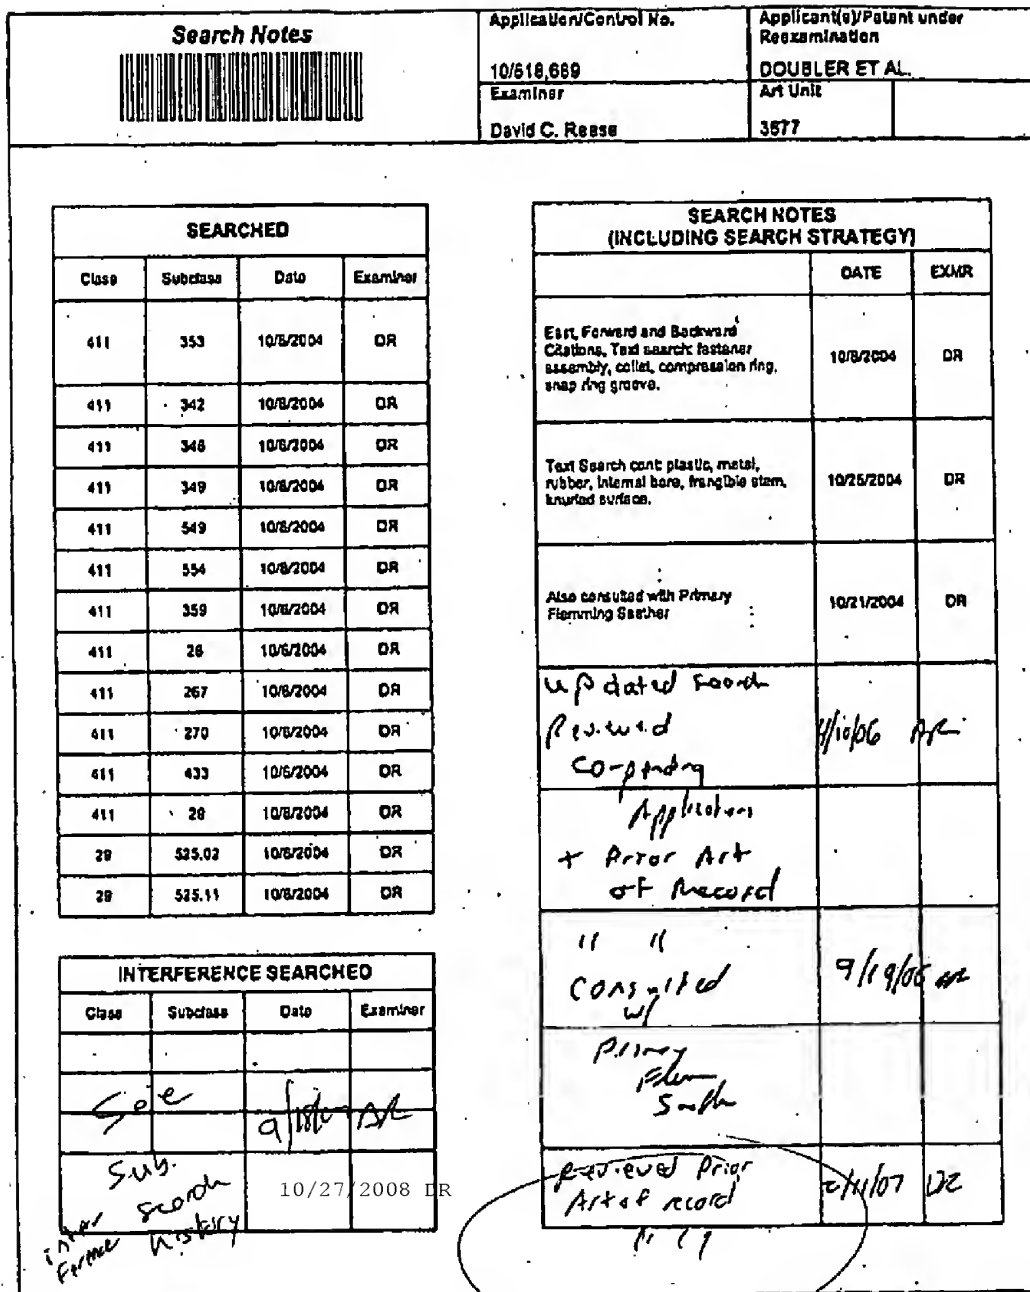 Search Notes
Application/Control No.
10/618,689
Applicant(s)/Patent under
Reexamination
DOUBLER ET AL.
Examiner
David C. Reese
Art Unit
3677
SEARCHED
Class Subclass Date Examiner
411 353 10/8/2004 DR
411 342 10/8/2004 DR
411 346 10/8/2004 DR
411 349 10/8/2004 DR
411 549 10/8/2004 DR
411 554 10/8/2004 DR
411 359 10/8/2004 DR
411 26 10/6/2004 DR
411 267 10/8/2004 DR
411 270 10/8/2004 DR
411 433 10/6/2004 DR
411 28 10/8/2004 DR
29 525.02 10/8/2004 DR
29 525.11 10/8/2004 DR
INTERFERENCE SEARCHED
Class Subclass Date Examiner
See
Sub.
search
history
Interference
10/27/2008 DR
SEARCH NOTES
(INCLUDING SEARCH STRATEGY)
DATE EXMR
East, Forward and Backward
Citations, Text search: fastener
assembly, collet, compression ring,
snap ring groove.
10/8/2004 DR
Text Search cont: plastic, metal,
rubber, internal bore, frangible stem,
knurled surface.
10/25/2004 DR
Also consulted with Primary
Flemming Saether
10/21/2004 DR
Updated search
Reviewed
Co-pending
4/10/06 DR
Applications
+ Prior Art
of Record
" "
Consulted
w/
9/19/06 DR
Primary
Flem
Saether
Reviewed Prior
Art of record
DR